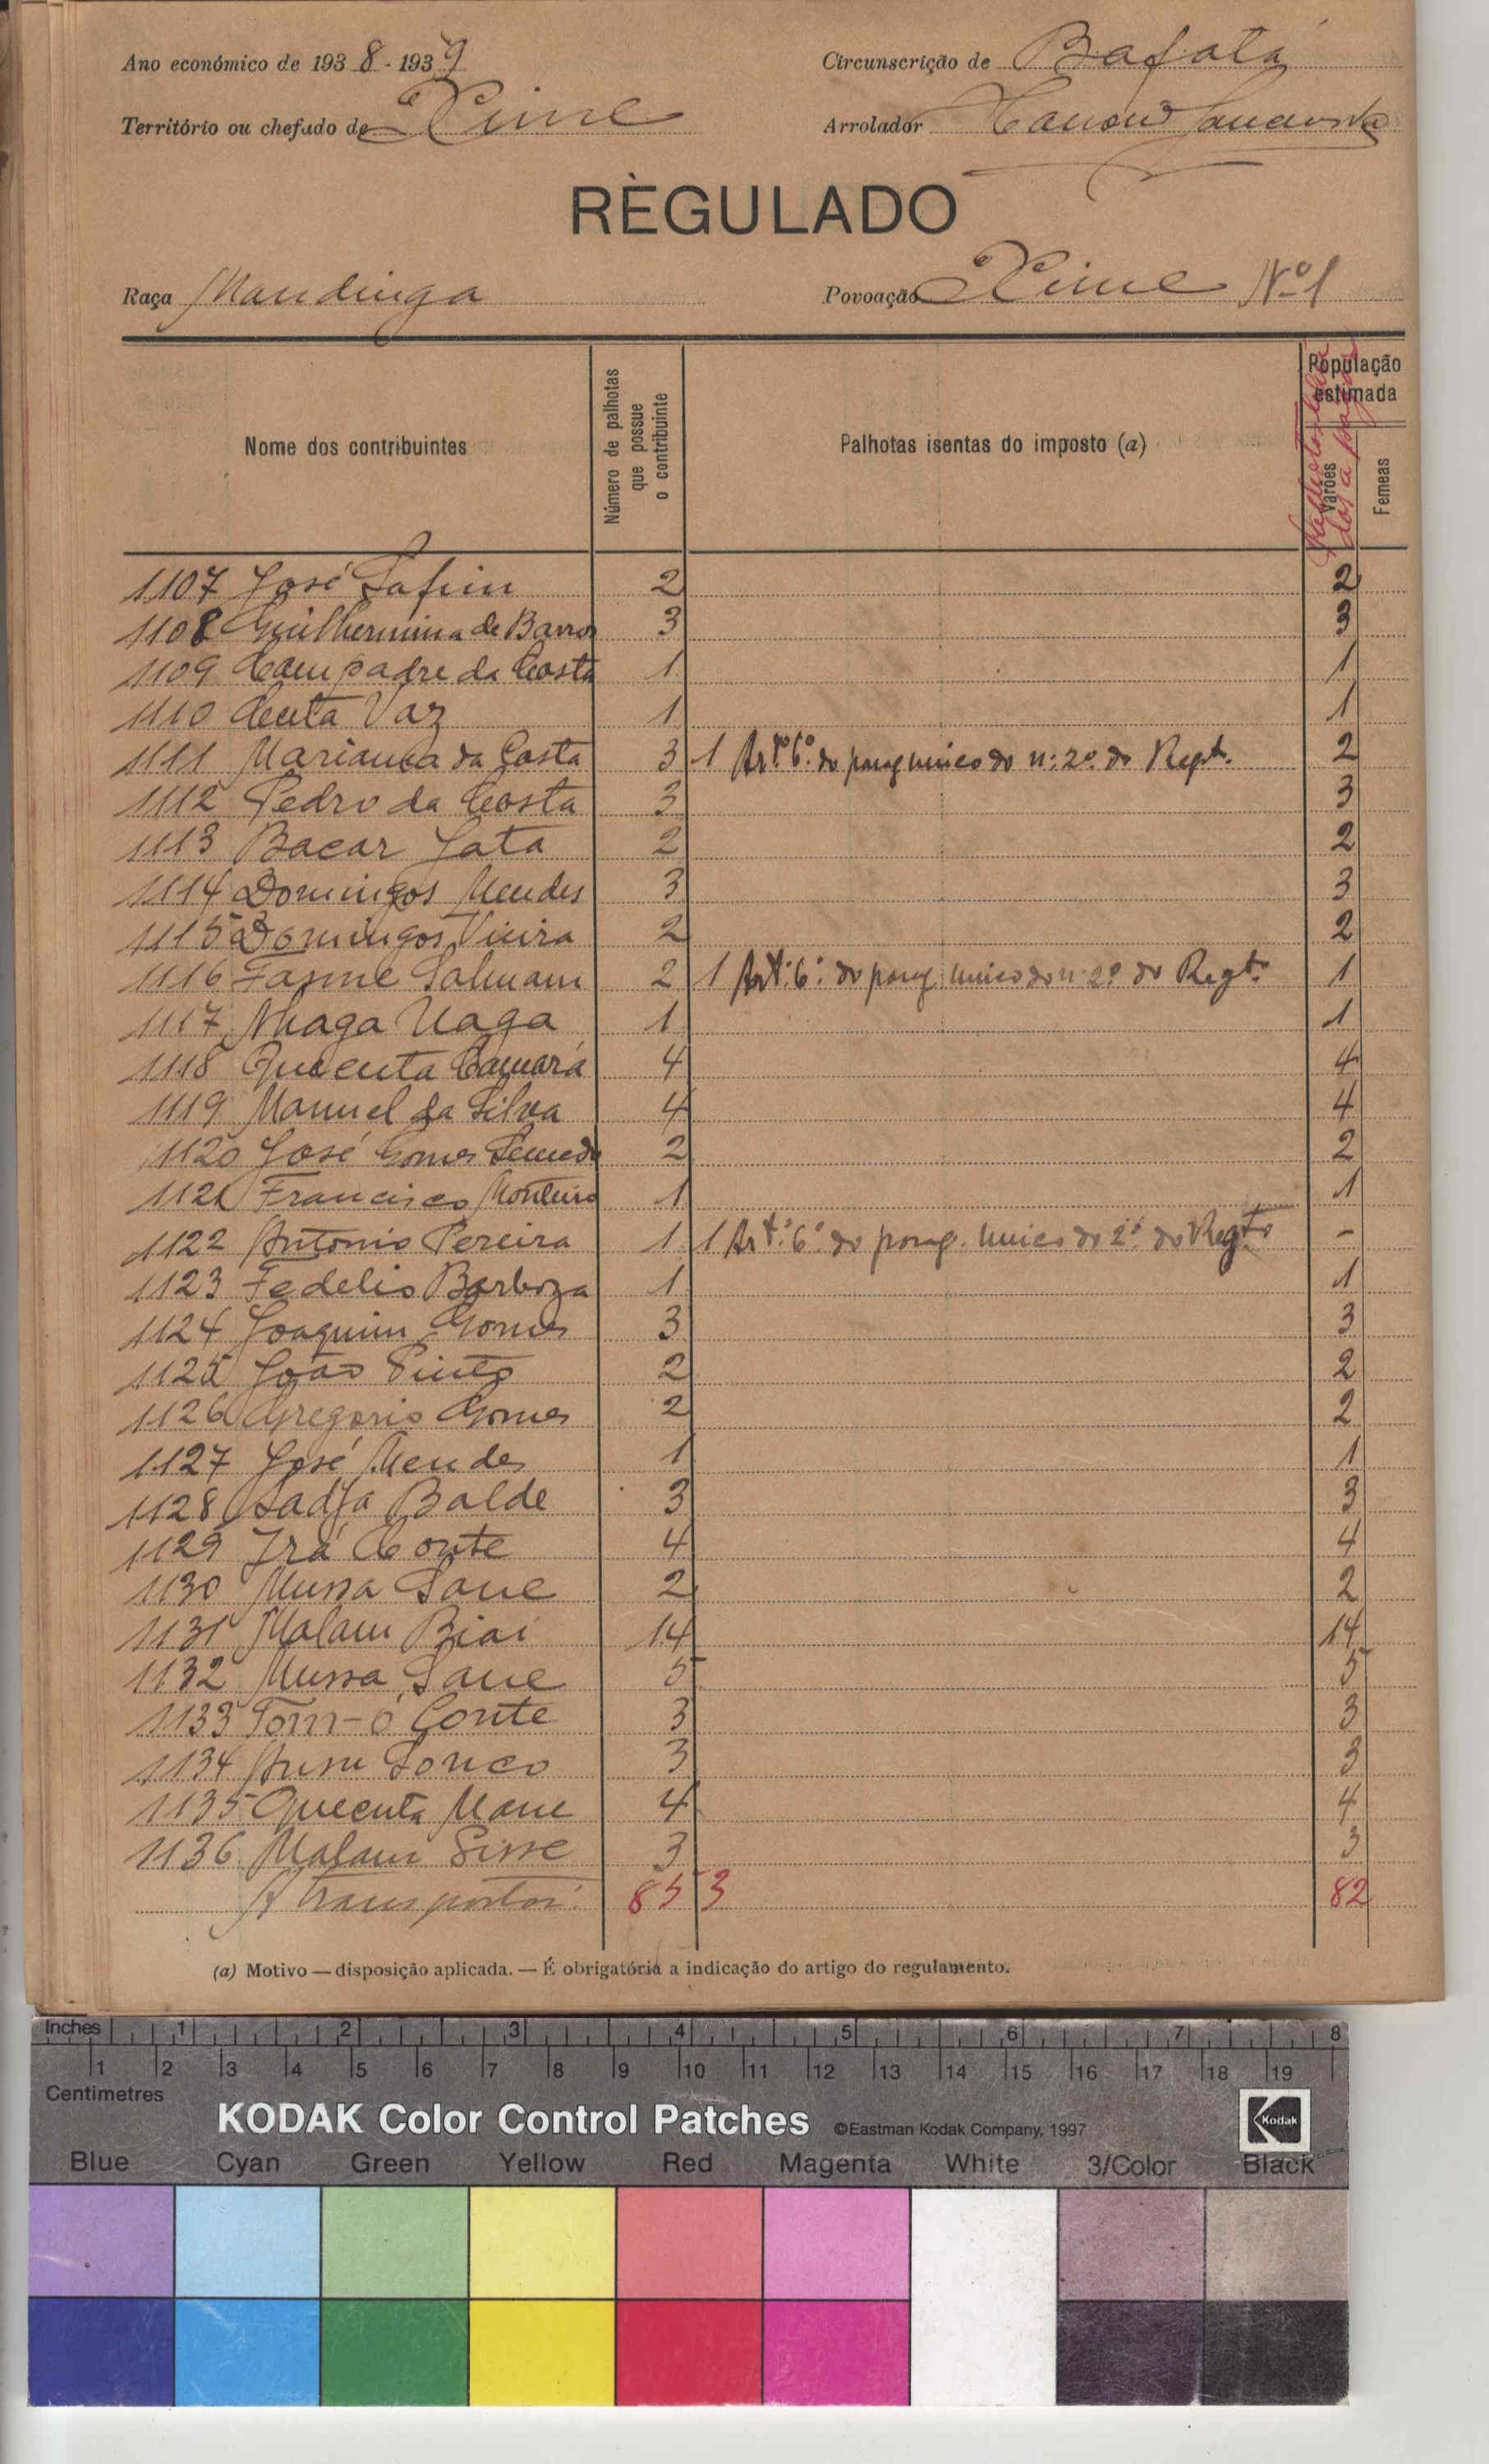 Ano económico de 1938-1939
Circunscrição de Bafatá
Território ou chefado de Xime
Arrolador
RÈGULADO
Raça Mandinga
Povoação Xime Nº1
Nome dos contribuintes
Número de palhotas que possue o contribuinte
Palhotas isentas do imposto (a)
População estimada
Varões
Femeas
1107 José Safim 2 2
1108 Guilhermina de Barros 3 3
1109 Compadre da Costa 1 1
1110 Vaz 1 1
1111 Marianca da Costa 3 1 Artº 6º do parag unico do n: 2º do Regt. 2
1112 Pedro da Costa 3 3
1113 Bacar 2 2
1114 Domingos Mendes 3 3
1115 Domingos Vieira 2 2
1116 2 1 Artº 6º do parag unico do n: 2º do Regt. 1
1117 1 1
1118 Quecuta Camará 4 4
1119 Manuel da Silva 4 4
1120 José Gomes Semedo 2 2
1121 Francisco Monteiro 1 1
1122 Antonio Pereira 1 1 Artº 6º do parag. unico do 2º do Regto -
1123 Fedelis Barboza 1 1
1124 Joaquim Gomes 3 3
1125 João Pinto 2 2
1126 Gregorio Gomes 2 2
1127 José Mendes 1 1
1128 Sadja Balde 3 3
1129 Irá Conte 4 4
1130 Mussa Sane 2 2
1131 Malam Biai 14 14
1132 Mussa Sane 5 5
1133 Tom-ó Conte 3 3
1134 Sonco 3 3
1135 Quecuta Mane 4 4
1136 Malam Sisse 3 3
A transportar: 85 3 82
(a) Motivo — disposição aplicada. — É obrigatória a indicação do artigo do regulamento.
Inches 1 2 3 4 5 6 7 8
1 2 3 4 5 6 7 8 9 10 11 12 13 14 15 16 17 18 19
Centimetres
KODAK Color Control Patches ©Eastman Kodak Company, 1997 Kodak
Blue Cyan Green Yellow Red Magenta White 3/Color Black